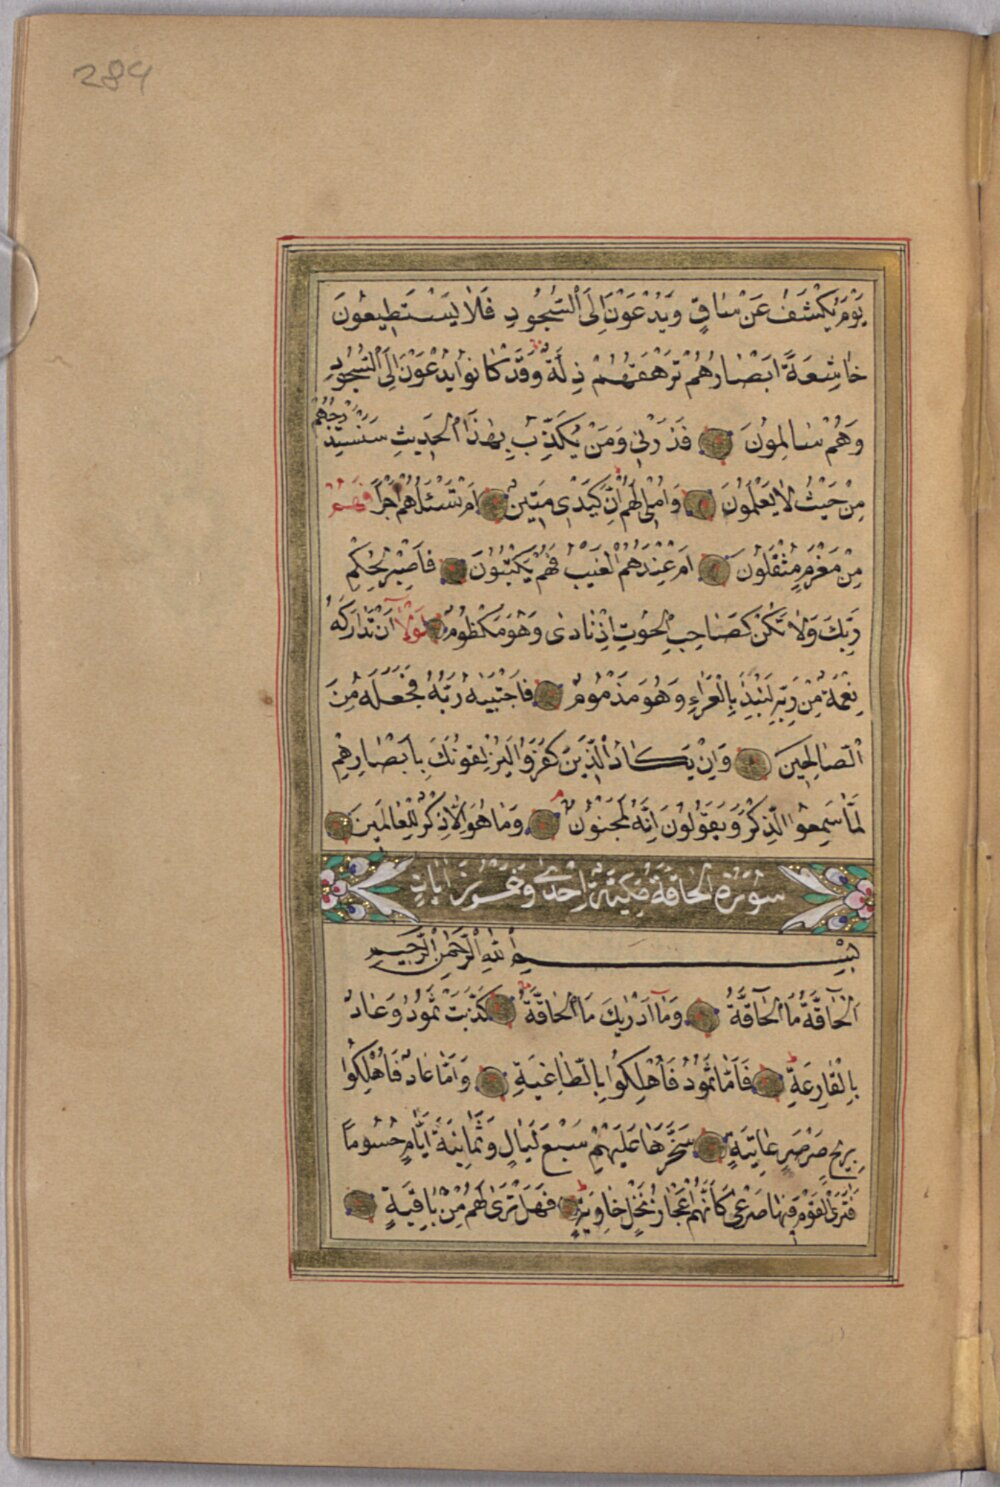 289
يَوْمَ يُكْشَفُ عَنْ سَاقٍ وَيُدْعَوْنَ اِلَى السُّجُودِ فَلَا يَسْتَطِيعُونَ
خَاشِعَةً اَبْصَارُهُمْ تَرْهَقُهُمْ ذِلَّةٌ وَقَدْ كَانُوا يُدْعَوْنَ اِلَى السُّجُودِ
وَهُمْ سَالِمُونَ فَذَرْنِي وَمَنْ يُكَذِّبُ بِهٰذَا الْحَدِيثِ سَنَسْتَدْرِجُهُمْ
مِنْ حَيْثُ لَا يَعْلَمُونَ وَاُمْلِي لَهُمْ اِنَّ كَيْدِي مَتِينٌ اَمْ تَسْـَٔلُهُمْ اَجْرًا فَهُمْ
مِنْ مَغْرَمٍ مُثْقَلُونَ اَمْ عِنْدَهُمُ الْغَيْبُ فَهُمْ يَكْتُبُونَ فَاصْبِرْ لِحُكْمِ
رَبِّكَ وَلَا تَكُنْ كَصَاحِبِ الْحُوتِ اِذْ نَادٰى وَهُوَ مَكْظُومٌ لَوْلَا اَنْ تَدَارَكَهُ
نِعْمَةٌ مِنْ رَبِّهِ لَنُبِذَ بِالْعَرَاءِ وَهُوَ مَذْمُومٌ فَاجْتَبٰيهُ رَبُّهُ فَجَعَلَهُ مِنَ
الصَّالِحِينَ وَاِنْ يَكَادُ الَّذِينَ كَفَرُوا لَيُزْلِقُونَكَ بِاَبْصَارِهِمْ
لَمَّا سَمِعُوا الذِّكْرَ وَيَقُولُونَ اِنَّهُ لَمَجْنُونٌ وَمَا هُوَ اِلَّا ذِكْرٌ لِلْعَالَمِينَ
سُورَةُ الْحَاقَّةِ مَكِّيَّة اِحْدٰى وَخَمْسُونَ اٰيَاتٍ
بِسْمِ اللّٰهِ الرَّحْمٰنِ الرَّحِيمِ
اَلْحَاقَّةُ مَا الْحَاقَّةُ وَمَا اَدْرٰيكَ مَا الْحَاقَّةُ كَذَّبَتْ ثَمُودُ وَعَادٌ
بِالْقَارِعَةِ فَاَمَّا ثَمُودُ فَاُهْلِكُوا بِالطَّاغِيَةِ وَاَمَّا عَادٌ فَاُهْلِكُوا
بِرِيحٍ صَرْصَرٍ عَاتِيَةٍ سَخَّرَهَا عَلَيْهِمْ سَبْعَ لَيَالٍ وَثَمَانِيَةَ اَيَّامٍ حُسُومًا
فَتَرَى الْقَوْمَ فِيهَا صَرْعٰى كَاَنَّهُمْ اَعْجَازُ نَخْلٍ خَاوِيَةٍ فَهَلْ تَرٰى لَهُمْ مِنْ بَاقِيَةٍ